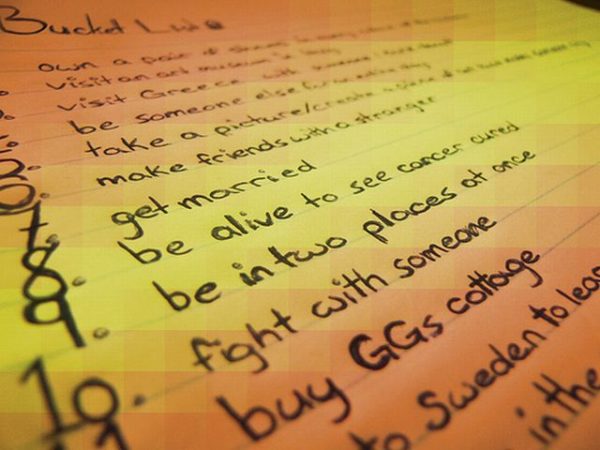 Bucket List
own a pair of
visit an art museum in
visit Greece with someone
be someone else for
take a picture/create a piece of
6. make friends with a stranger
7. get married
8. be alive to see cancer cured
9. be in two places at once
10. fight with someone
11 buy GGs cottage
to Sweden to lea
in the